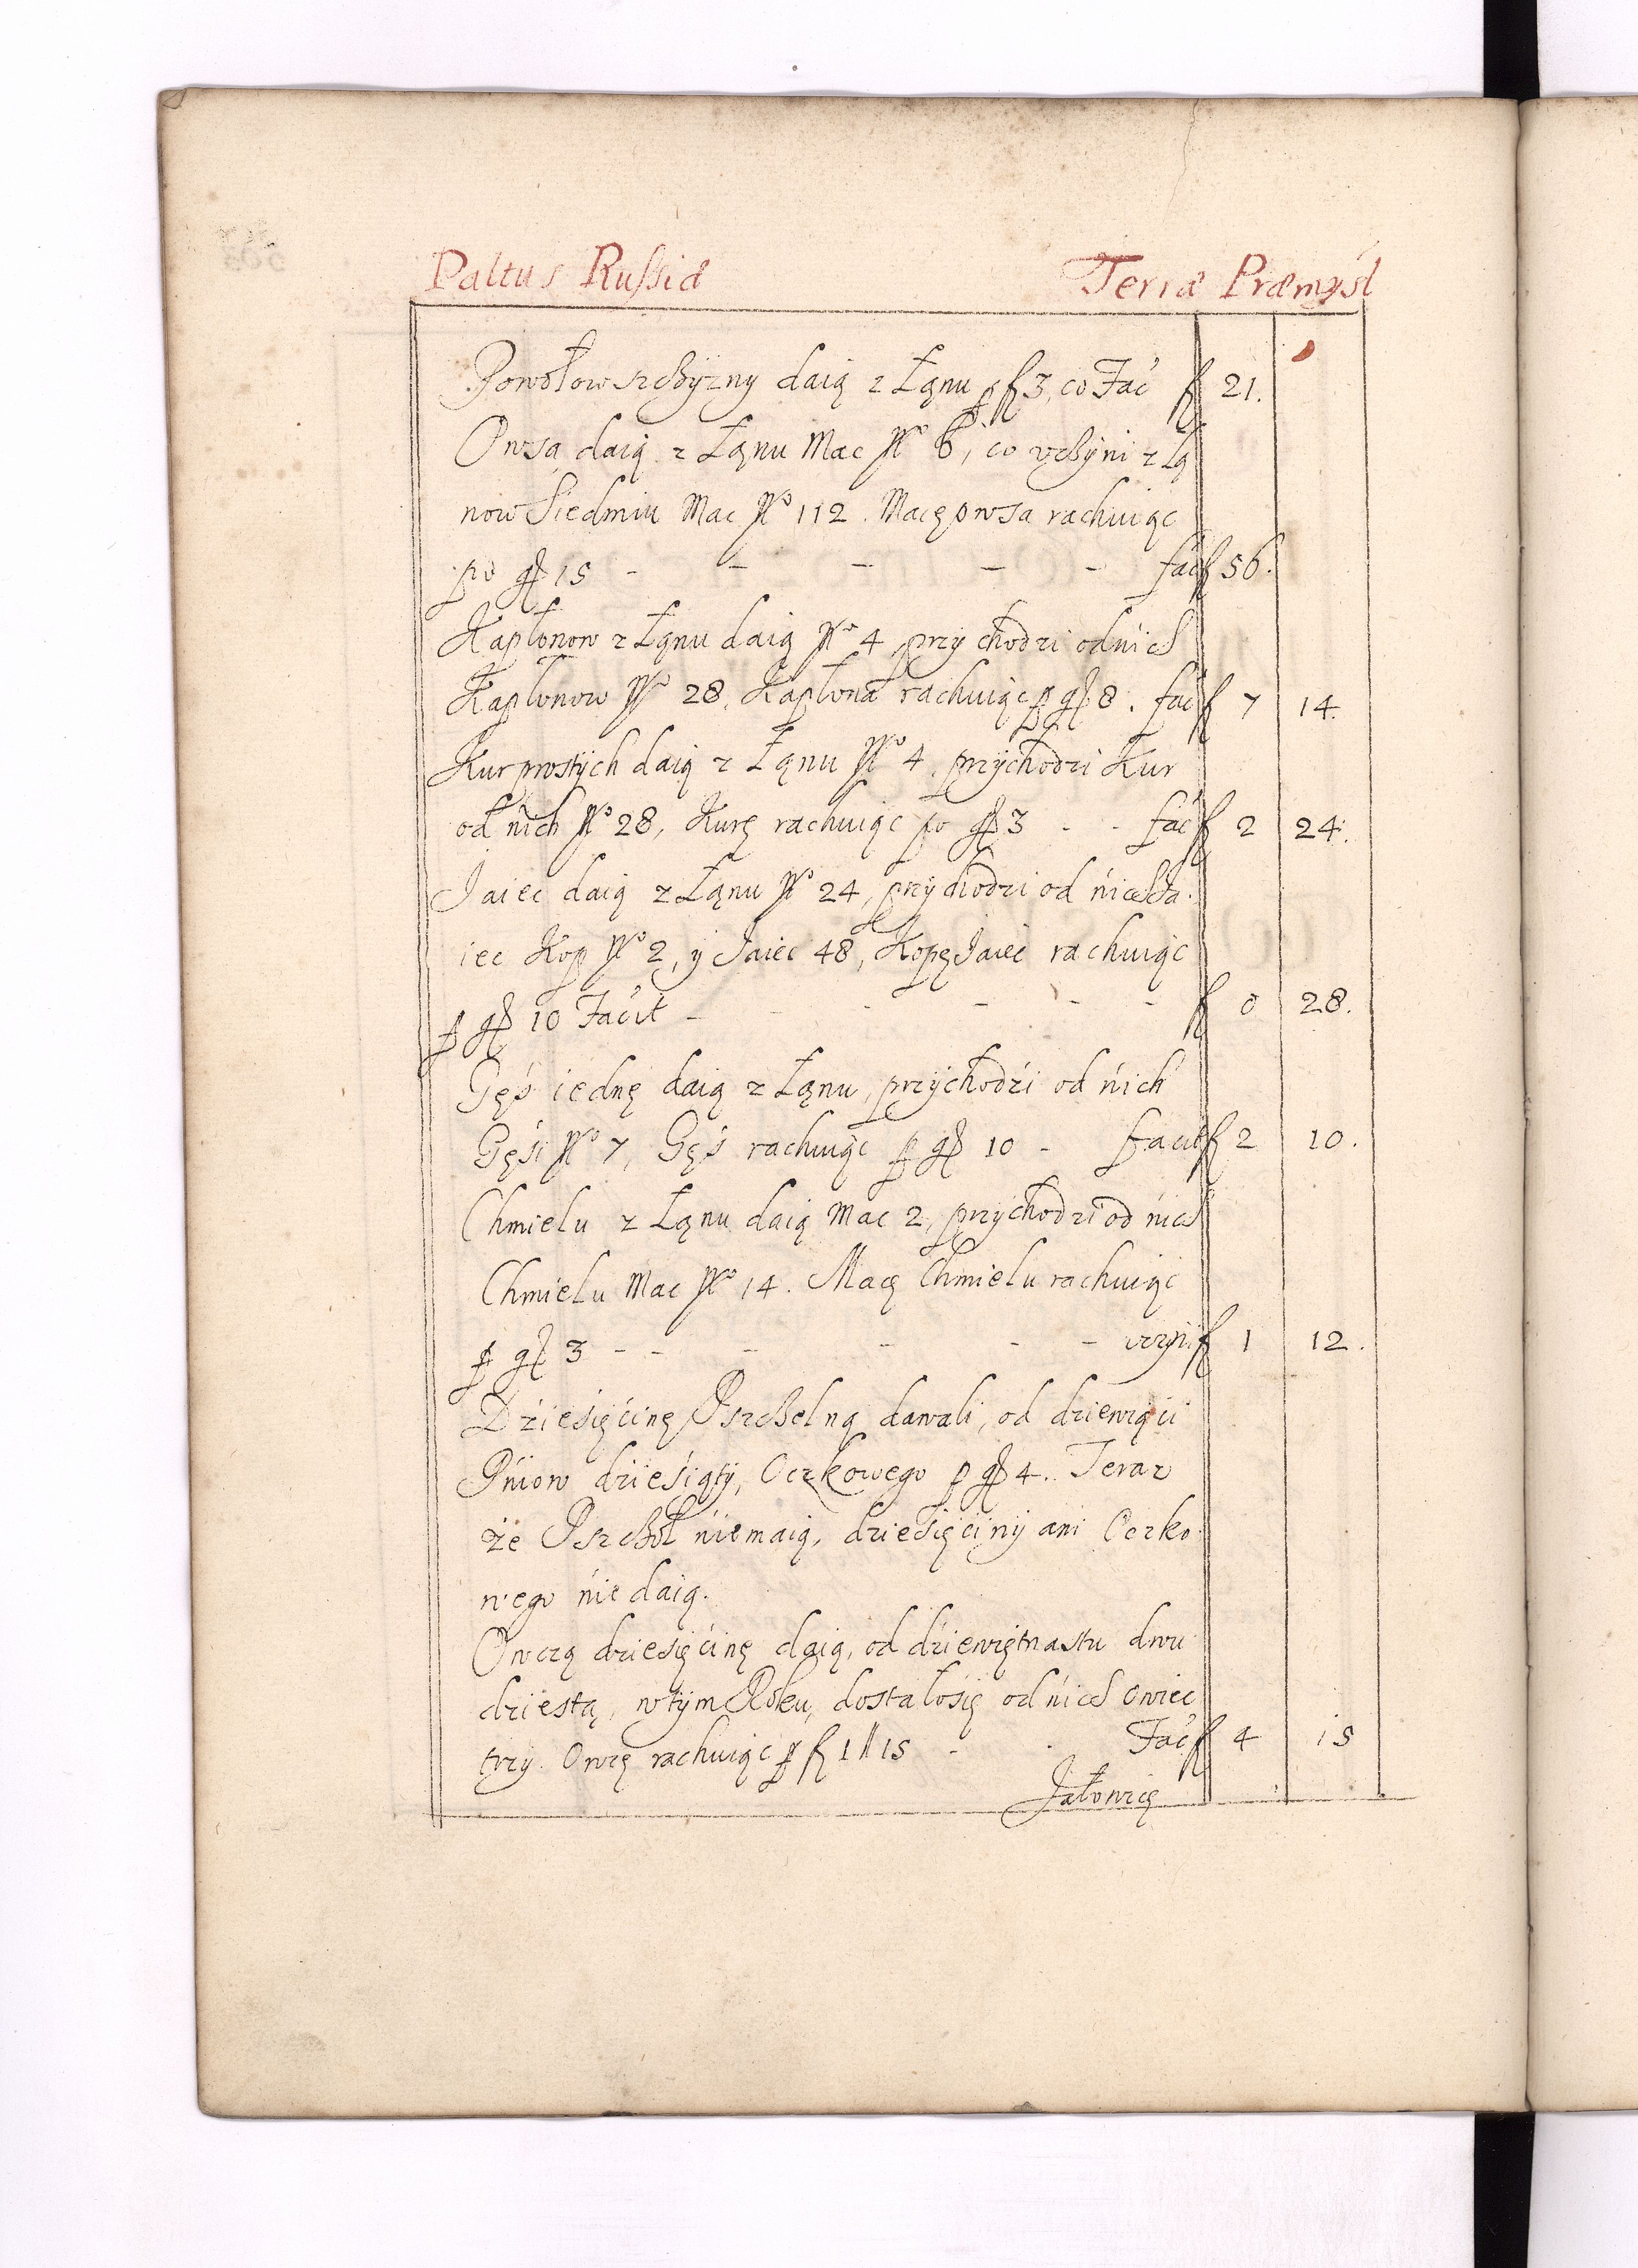 Paltus Russiæ Terræ Præmysl
Powołowszchÿzny daią z Łąnu p f 3, co Fac f 21.
Owsa daią z Łąnu Mac No 16, co vchÿni z Łą
now Siedmiu Mac No 112. Macę owsa rachuiąc
po gr 15 - - - - - fac f 56.
Kapłonow z Łąnu daią No 4 przychodzi od nich
Kapłonow No 28, Kapłona rachuiąc p gr 8. fac f 7 14.
Kur prostÿch daią z Łąnu No 4, przÿchodzi Kur
od nich No 28, Kurę rachuiąc po gr 3 - - fac f 2 24.
Jaiec daią z Łąnu No 24, przychodzi od nich Ja
iec Kop No 2, ÿ Jaiec 48, Kopę Jaiec rachuiąc
p gr 10 Facit - - - - - - f 0 28.
Gęś iednę daią z Łąnu, przÿchodźi od nich
Gęśi No 7, Gęś rachuiąc p gr 10 - facit f 2 10.
Chmielu z Łąnu daią Mac 2, przÿchodzi od nich
Chmielu Mac No 14. Macę Chmielu rachuiąc
p gr 3 - - - - - - vczÿni f 1 12.
Dźieśięćinę Pszchelną dawali, od dziewiąci
Pniow dźieśiątÿ, Oczkowego p gr 4. Teraz
że Pszchół niemaią, dzieśięćinÿ ani Oczko
wego nie daią.
Owczą dzieśięćinę daią, od dźiewiętnastu dwu
dziestą, w tÿm Roku, dostałosię od nich owiec
trzy. Owcę rachuiąc p f 1 // 15 - - Fac f 4 15
Jałowicę